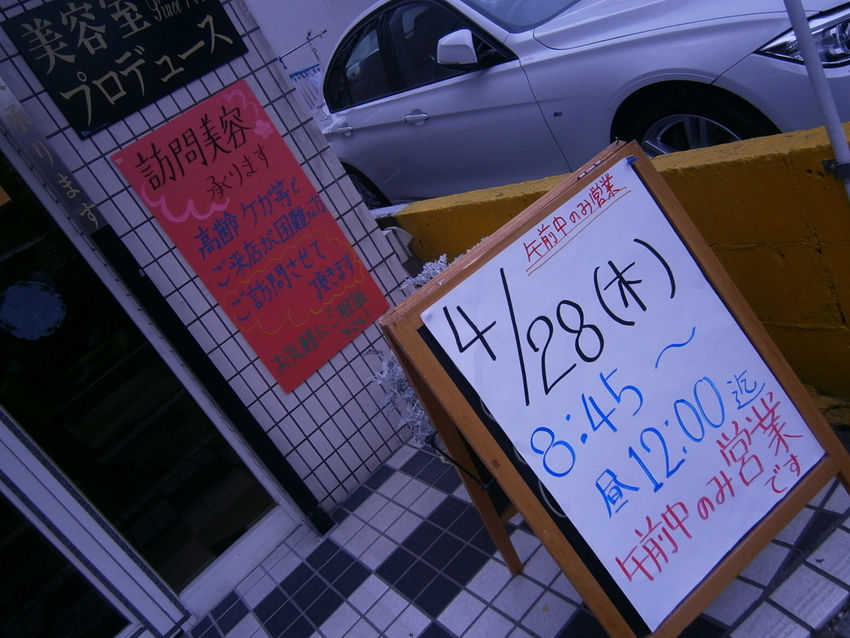 美容室 Since
プロデュース
承ります
訪問美容
承ります
高齢ケガ等で
ご来店が困難な方
ご訪問させて
頂きます
お気軽にご相談
下さい
午前中のみ営業
4/28(木)
8:45～
昼12:00迄
午前中のみ営業
です